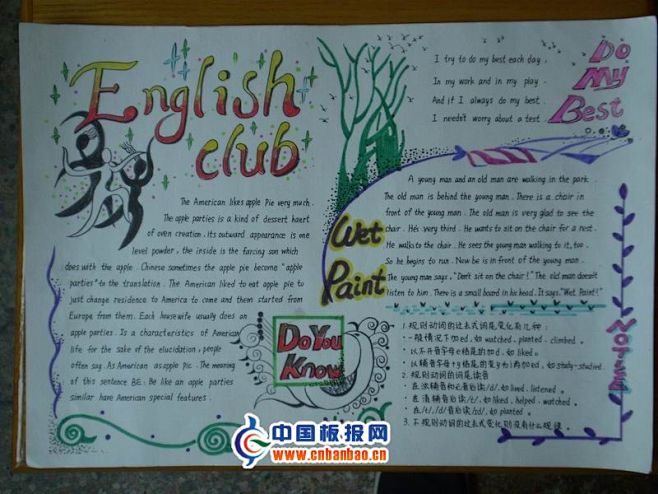 English
club
The American likes apple Pie very much.
The apple parties is a kind of dessert haert
of oven creation. Its outward appearance is one
level powder, the inside is the farcing son which
does with the apple. Chinese sometimes the apple pie become "apple
parties" to the translation. The American liked to eat apple pie to
just change residence to America to come and them started from
Europe from them. Each housewife usually does an
apple parties. Is a characteristics of American
life for the sake of the elucidation, people
often say. As American as apple pic. The meaning
of this sentence BE: Be like an apple parties
similar have American special features.
Do You
Know
I try to do my best each day,
In my work and in my play.
And if I always do my best.
I needn't worry about a test.
Do
My
Best
Wet
Paint
A young man and an old man are walking in the park.
The old man is behind the young man. There is a chair in
front of the young man. The old man is very glad to see the
chair. He's very third. He wants to sit on the chair for a rest.
He walks to the chair. He sees the young man walking to it, too.
So he begins to run. Now be is in front of the young man.
The young man says, "Don't sit on the chair!" The old man doesn't
listen to him. There is a small board in his head. It says, "Wet Paint!"
1. 规则动词的过去式词尾变化有几种:
一般情况下加ed, 如 watched, planted, climbed。
以不发音字母e结尾的加d, 如 liked。
以辅音字母+y结尾的变y为i再加ed, 如 study-studied.
2. 规则动词的词尾读音
在浊辅音和元音后读/d/, 如 lived, listened。
在清辅音后读/t/, 如 liked, helped, watched。
在/t/, /d/音后读/id/, 如 planted。
3. 不规则动词的过去式变化则没有什么规律。
中国板报网
www.cnbanbao.cn